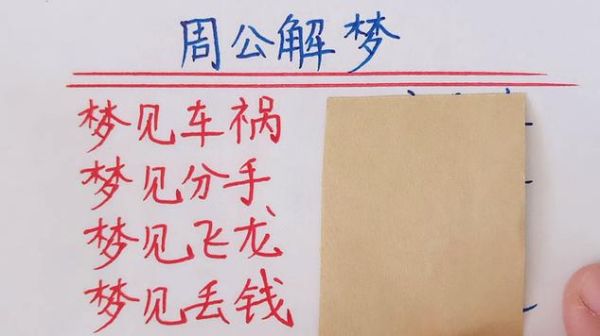 周公解梦
梦见车祸
梦见分手
梦见飞龙
梦见丢钱